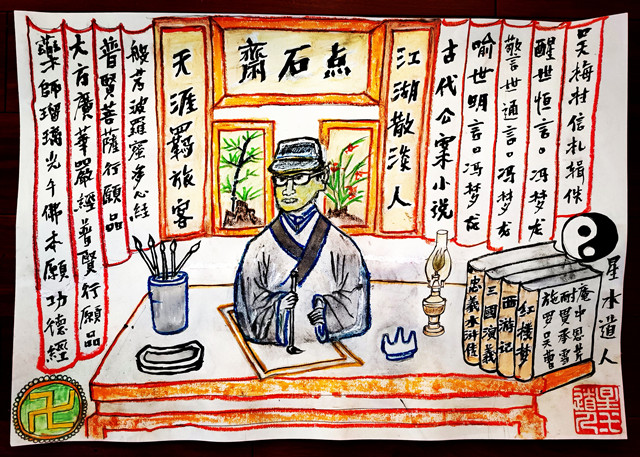 吴梅村信札辑佚
醒世恒言。冯梦龙
警世通言。冯梦龙
喻世明言。冯梦龙
古代公案小说
江湖散淡人
点石齋
天涯羁旅客
般若波羅蜜多心经
普賢菩薩行願品
大方廣華嚴經普賢行願品
藥師瑠璃光七佛本願功德經
忠義水浒传
三國演義
西游记
红樓梦
庵中恩芹
耐贯承雪
施罗吴曹
星水道人
星水道人
卍